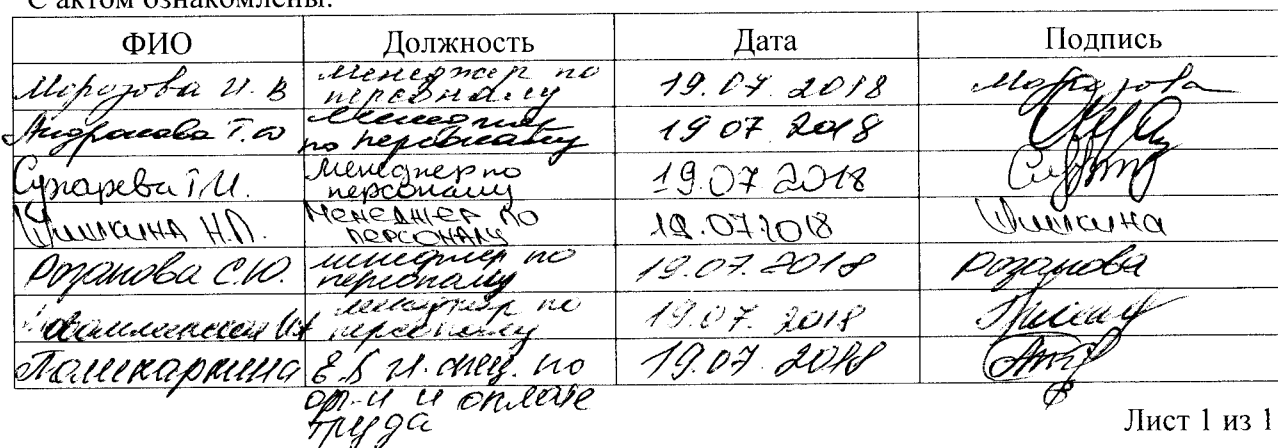 С актом ознакомлены:
ФИО Должность Дата Подпись
Морозова И. В менеджер по персоналу 19.07.2018 Морозова
Андрюкова Т.Ю менеджер по персоналу 19 07 2018
Сухарева Т.И. Менеджер по персоналу 19.07 2018
Шишкина Н.П. Менеджер по персоналу 19.07.2018 Шишкина
Розанова С.Ю. менеджер по персоналу 19.07.2018 Розанова
менеджер по персоналу 19.07.2018
19.07 2018
по
ор-и и оплате
труда
Лист 1 из 1